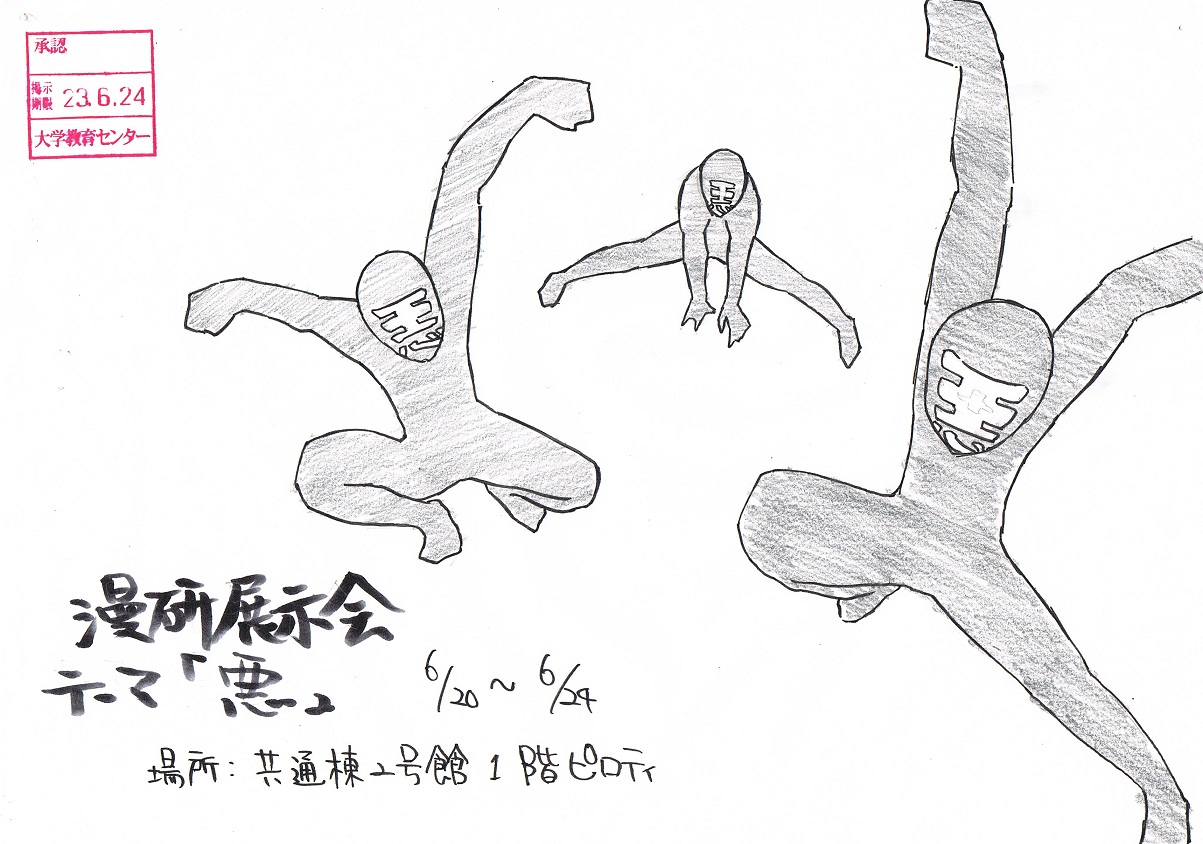 承認
掲示期限 23.6.24
大学教育センター
悪
悪
悪
漫研展示会
テーマ「悪」
6/20～6/24
場所：共通棟2号館 1階ピロティ